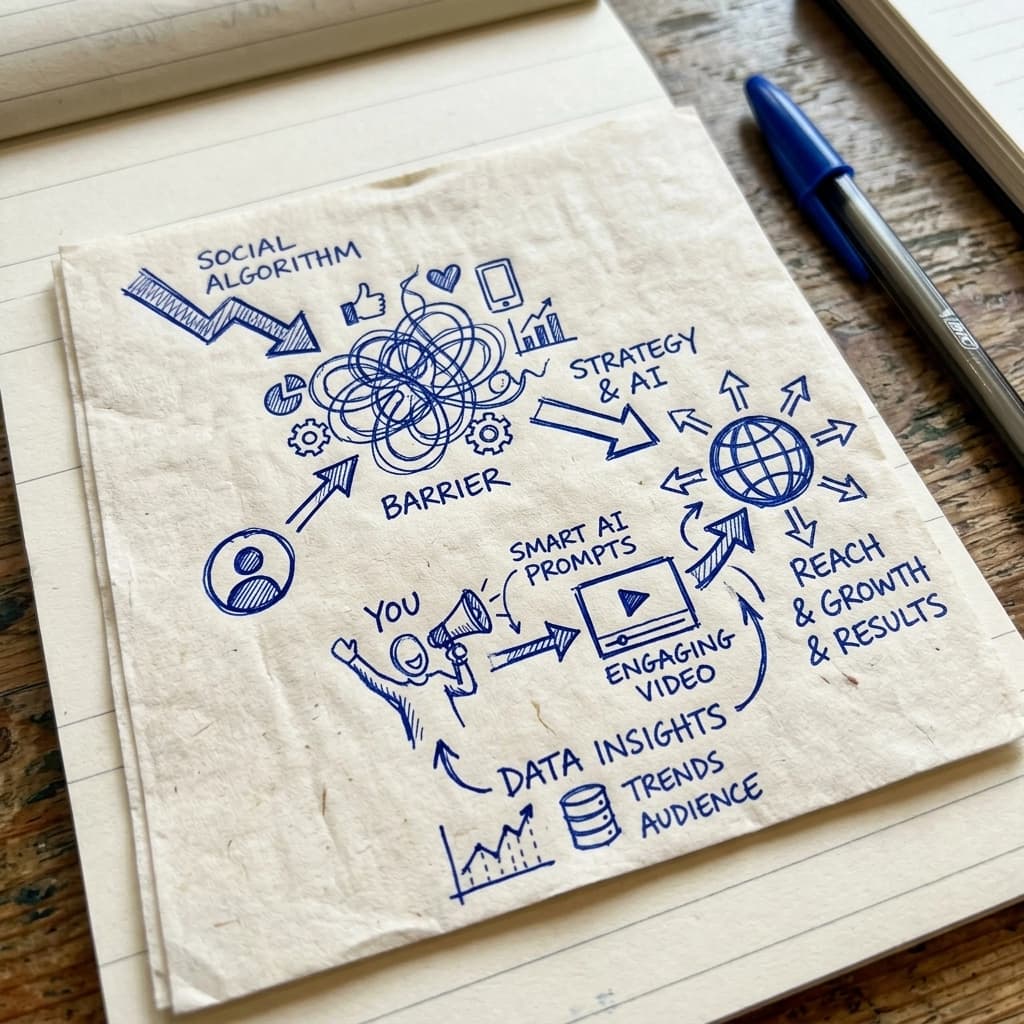 SOCIAL
ALGORITHM
STRATEGY
& AI
BARRIER
SMART AI
PROMPTS
YOU
ENGAGING
VIDEO
REACH
& GROWTH
& RESULTS
DATA INSIGHTS
TRENDS
AUDIENCE